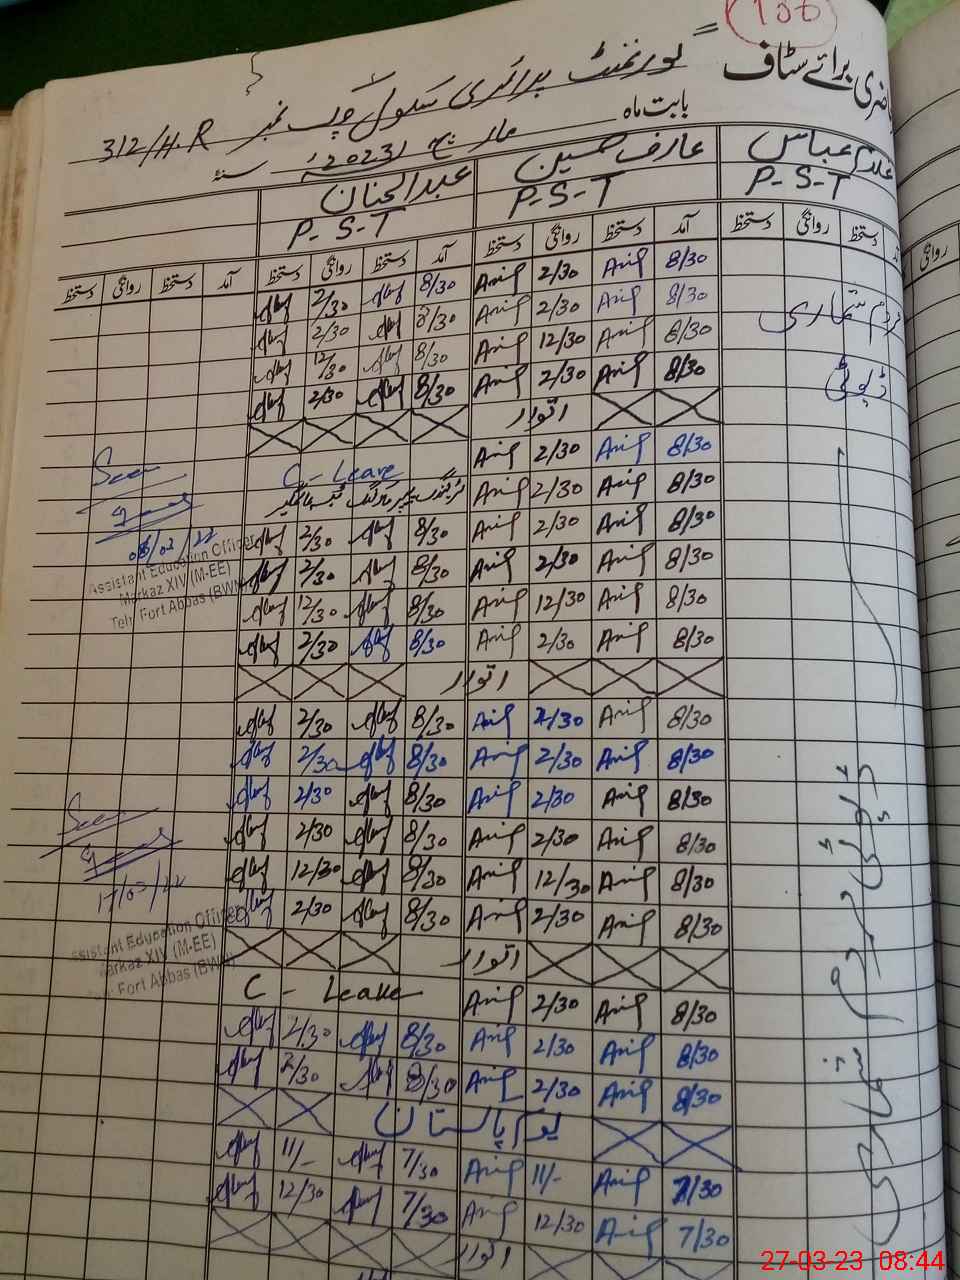 106
حاضری برائے سٹاف
گورنمنٹ پرائمری سکول چک نمبر 312/H.R
بابت ماہ مارچ 2023 سنہ
غلام عباس عارف حسین عبدالحنان
P-S-T P-S-T P-S-T
دستخط روانگی دستخط آمد دستخط روانگی دستخط آمد دستخط روانگی دستخط آمد دستخط روانگی دستخط
8/30 Arif 2/30 Arif 8/30 2/30
8/30 Arif 2/30 Arif 8/30 2/30
8/30 Arif 12/30 Arif 8/30 12/30
8/30 Arif 2/30 Arif 8/30 2/30
اتوار
8/30 Arif 2/30 Arif C-Leave
8/30 Arif 2/30 Arif
8/30 Arif 2/30 Arif 8/30 2/30
8/30 Arif 2/30 Arif 8/30 2/30
8/30 Arif 12/30 Arif 8/30 12/30
8/30 Arif 2/30 Arif 8/30 2/30
اتوار
8/30 Arif 2/30 Arif 8/30 2/30
8/30 Arif 2/30 Arif 8/30 2/30
8/30 Arif 2/30 Arif 8/30 2/30
8/30 Arif 2/30 Arif 8/30 2/30
8/30 Arif 12/30 Arif 8/30 12/30
8/30 Arif 2/30 Arif 8/30 2/30
اتوار
8/30 Arif 2/30 Arif C - Leave
8/30 Arif 2/30 Arif 8/30 2/30
8/30 Arif 2/30 Arif 8/30 2/30
یوم پاکستان
7/30 Arif 11/- Arif 7/30 11/-
7/30 Arif 12/30 Arif 7/30 12/30
اتوار
مردم شماری
ڈیوٹی
ڈیوٹی مردم شماری
Seen
08/03/22
Assistant Education Officer
Markaz XIV (M-EE)
Teh: Fort Abbas (BWN)
Seen
17/03/22
Assistant Education Officer
Markaz XIV (M-EE)
Teh: Fort Abbas (BWN)
روانگی
27-03-23 08:44